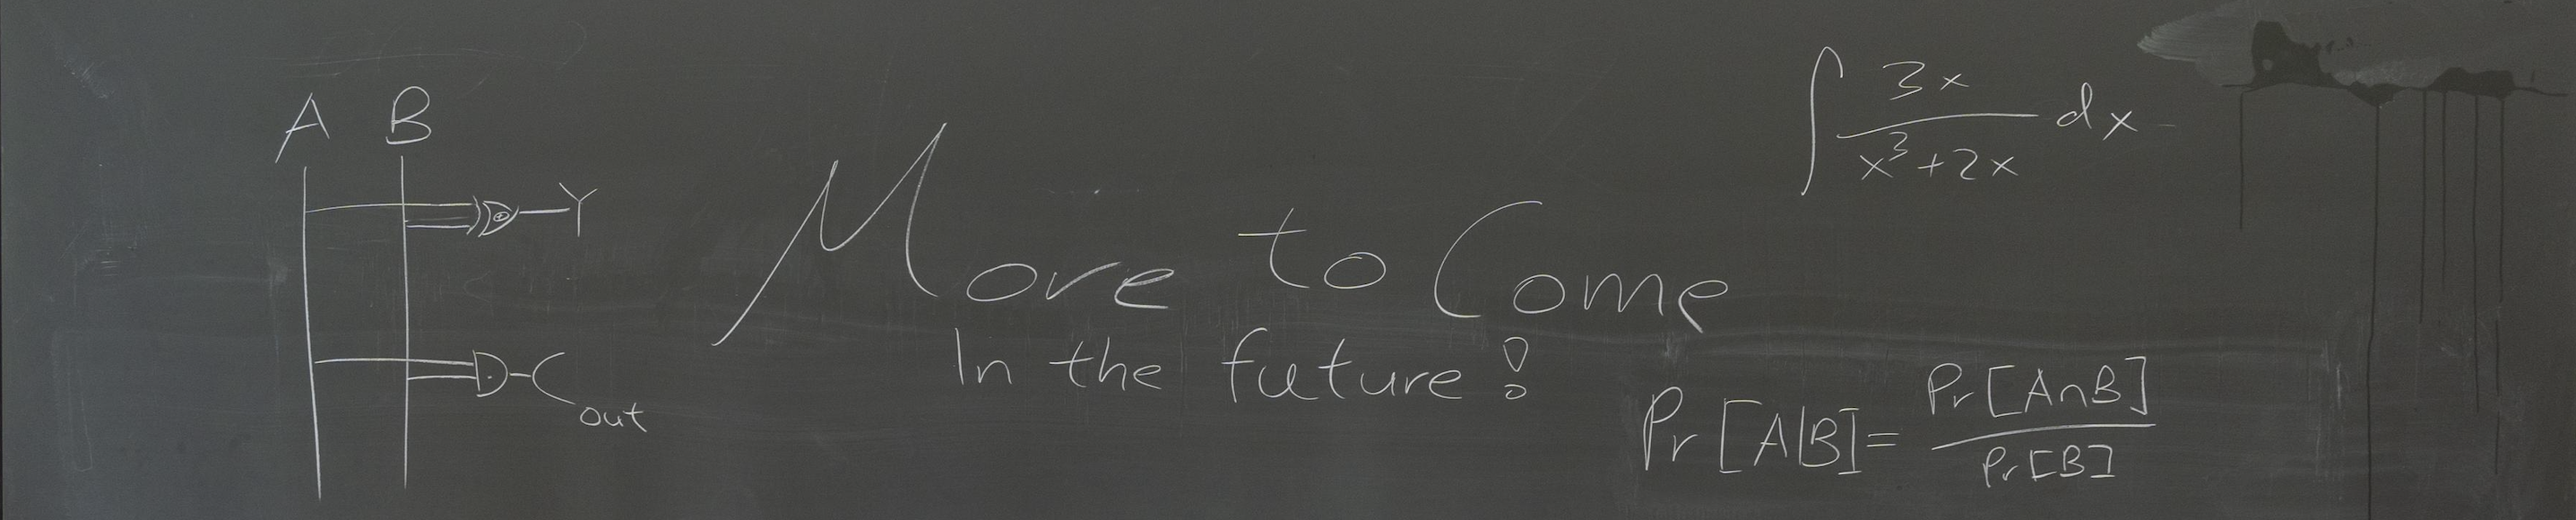 A B
Y
C out
More to Come
In the future!
∫ 3x / (x³+2x) dx
Pr[A|B] = Pr[A∩B] / Pr[B]